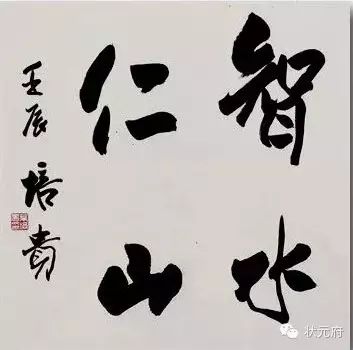 智水
仁山
壬辰
培贵
状元府